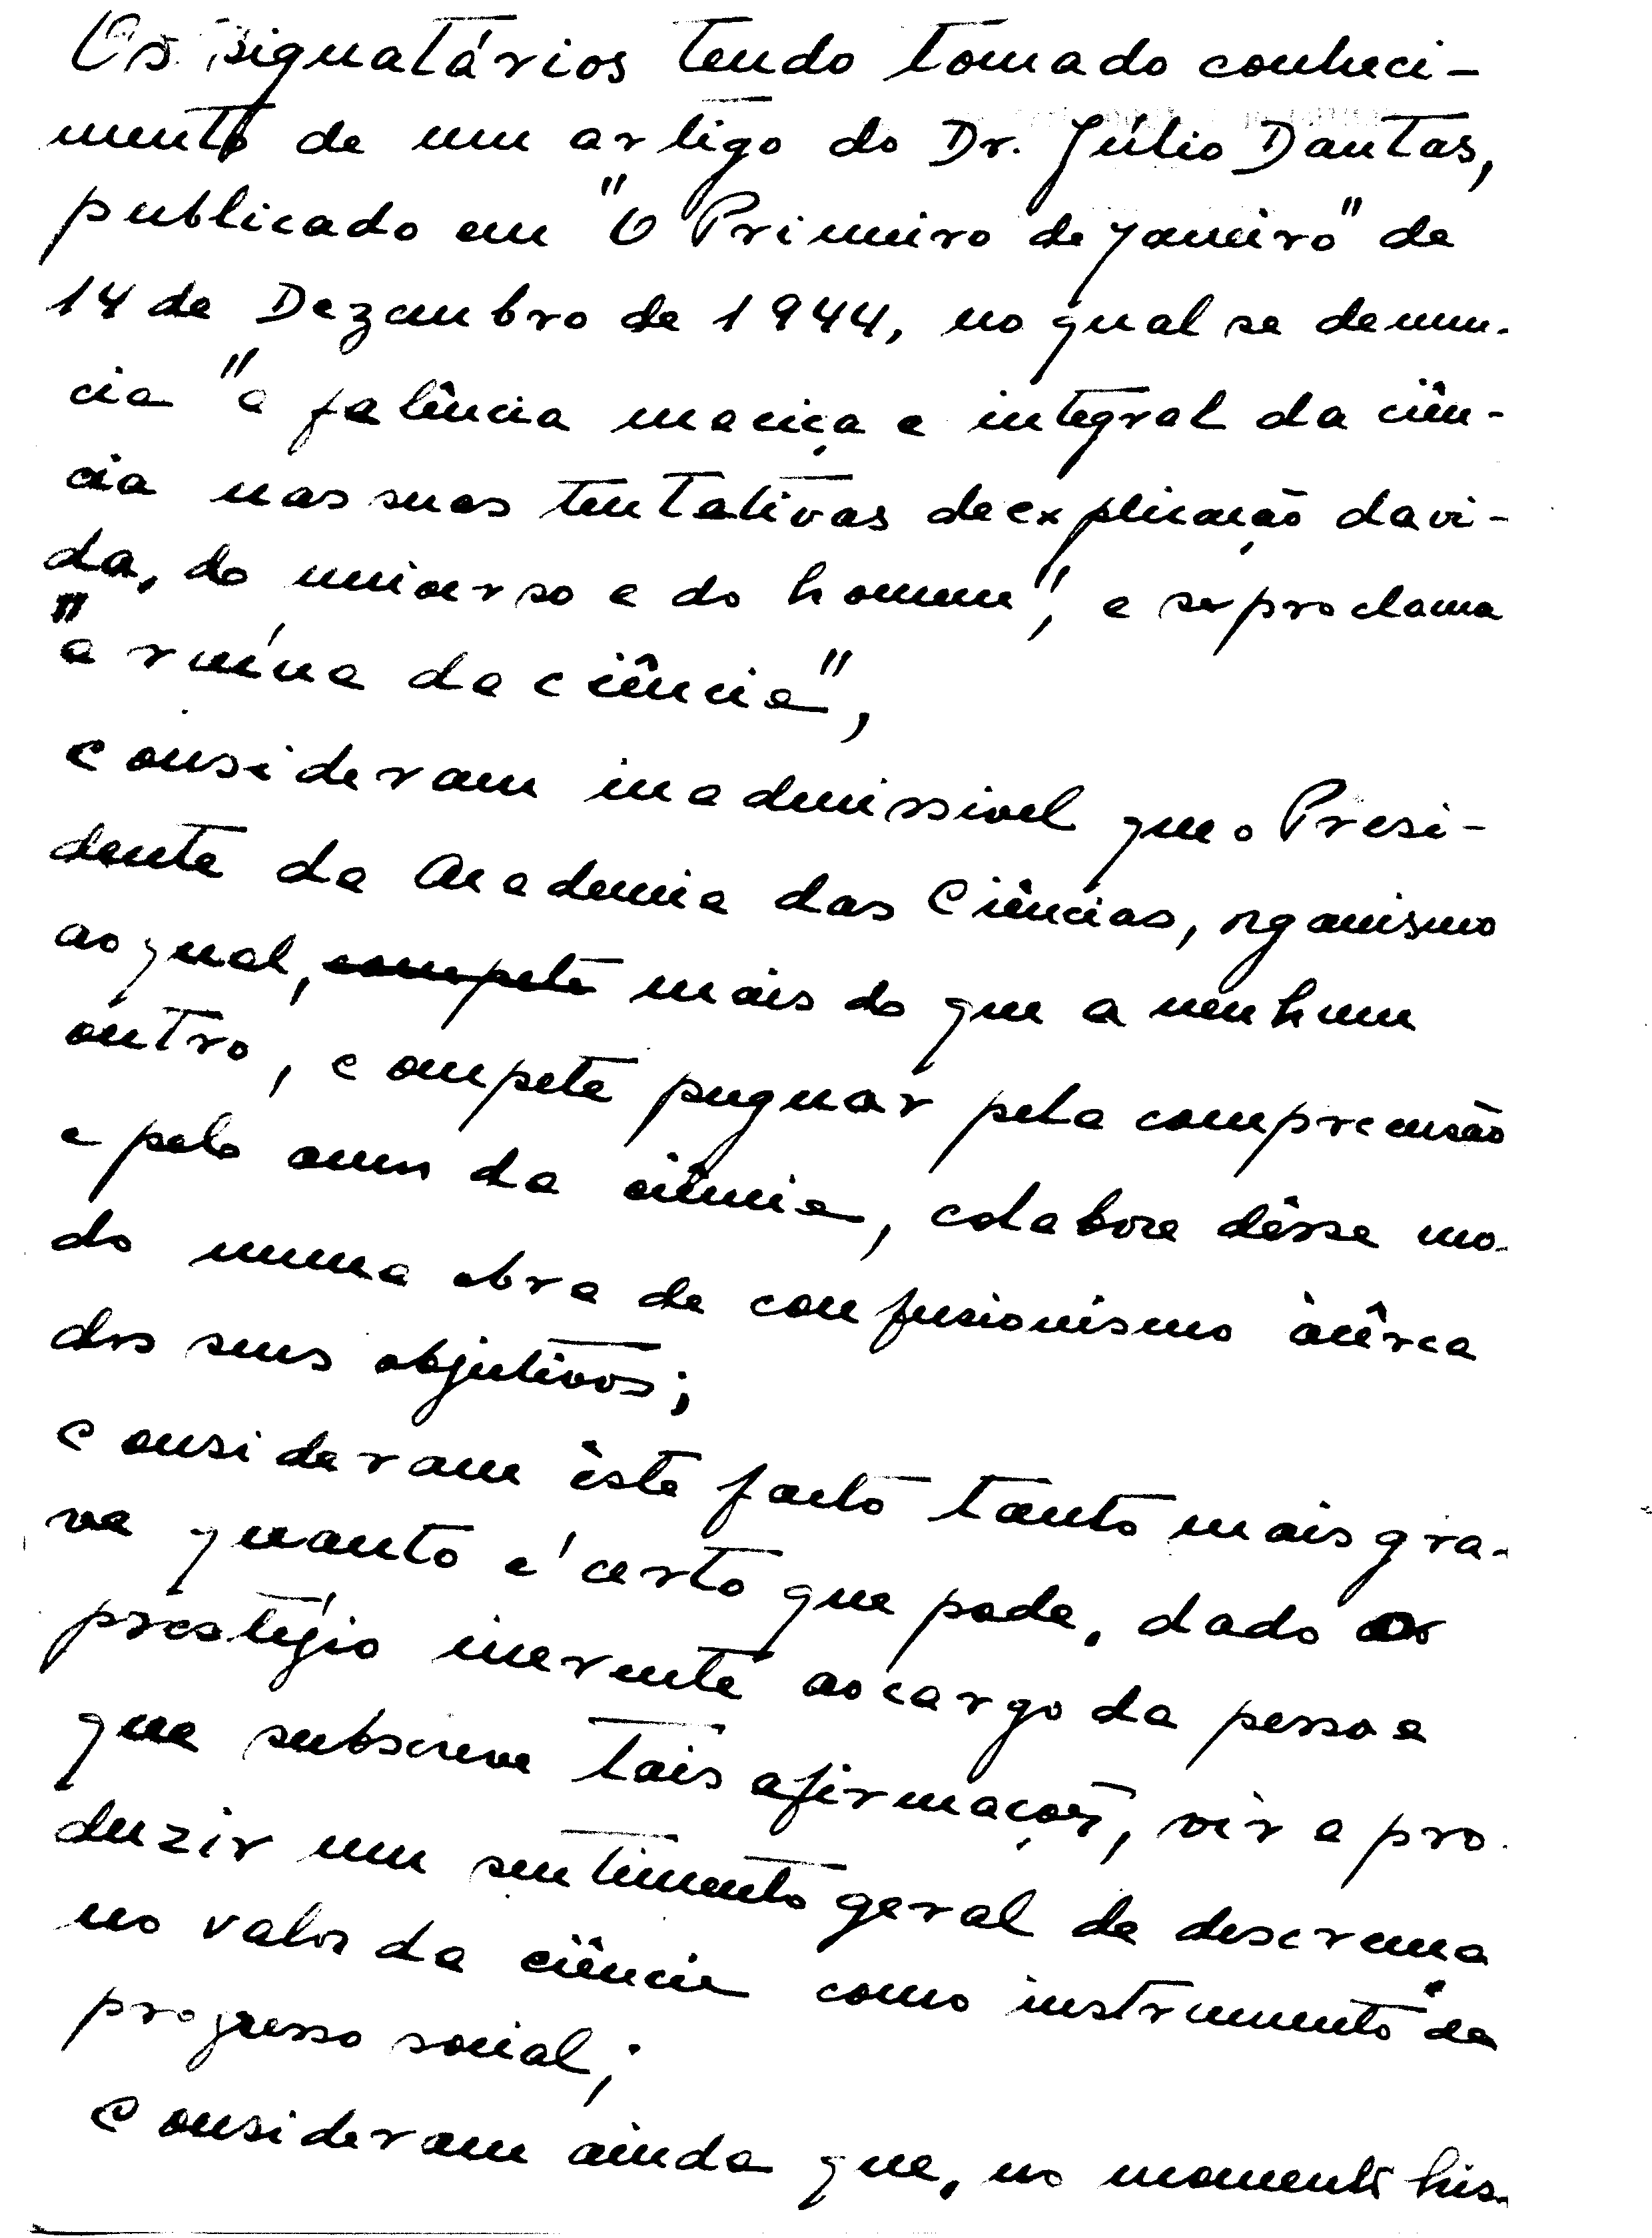 Os signatários tendo tomado conheci-
mento de um artigo do Dr. Júlio Dantas,
publicado em "O Primeiro de Janeiro" de
14 de Dezembro de 1944, no qual se denun-
cia "a falência maciça e integral da ciên-
cia nas suas tentativas de explicação da vi-
da, do universo e do homem", e se proclama
"a ruína da ciência",
consideram inadmissivel que o Presi-
dente da Academia das Ciências, organismo
ao qual, compete mais do que a nenhum
outro, compete pugnar pela compreensão
e pelo amor da ciência, colabore dêsse mo-
do numa obra de confusionismo àcêrca
dos seus objetivos;
consideram êste facto tanto mais gra-
ve quanto é certo que pode, dado o
prestígio inerente ao cargo da pessoa
que subscreve tais afirmações, vir a pro-
duzir um sentimento geral de descrença
no valor da ciência como instrumento de
progresso social;
consideram ainda que, no momento his-